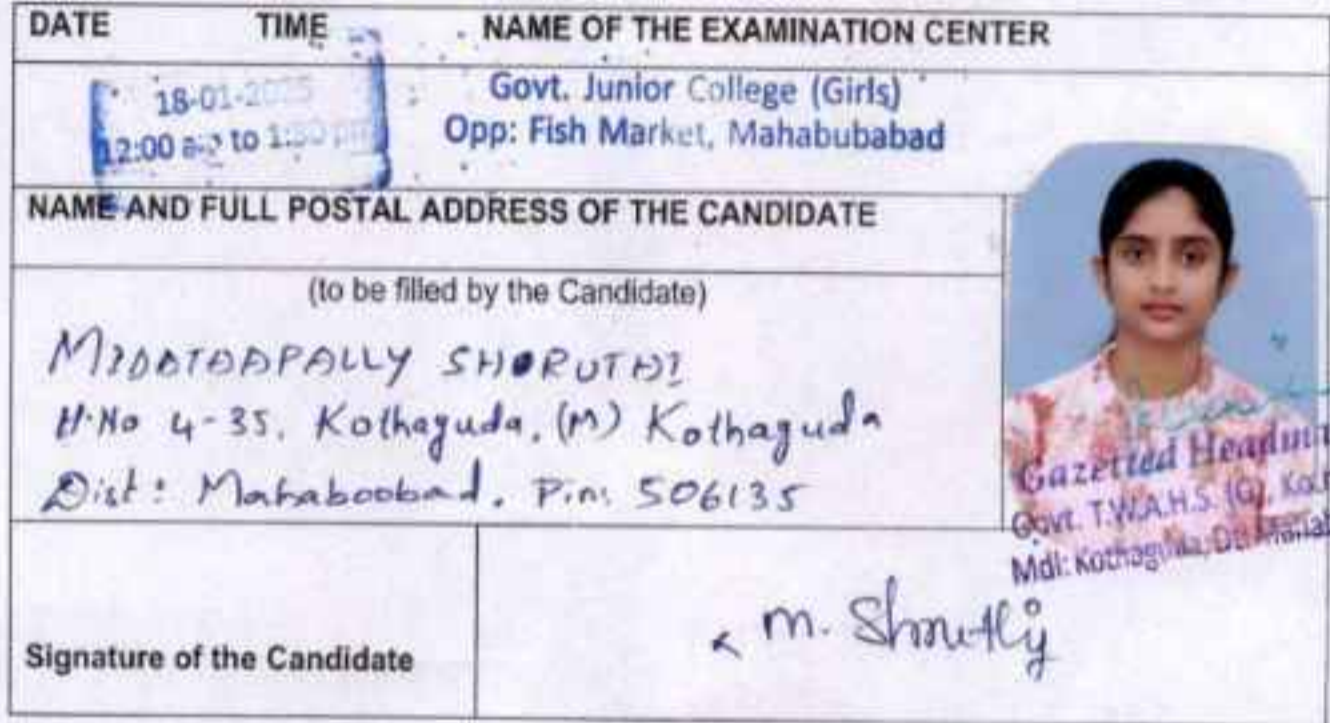 DATE TIME NAME OF THE EXAMINATION CENTER
18-01-2025
12:00 to 1:30 pm
Govt. Junior College (Girls)
Opp: Fish Market, Mahabubabad
NAME AND FULL POSTAL ADDRESS OF THE CANDIDATE
(to be filled by the Candidate)
H.No 4-35, Kothaguda, (M) Kothaguda
Dist: Mahaboobad. Pin: 506135
Gazetted Headma
Govt. T.W.A.H.S. (G), Koth
Mdl: Kothaguda, Dt: Mahab
Signature of the Candidate
M. Shruthi